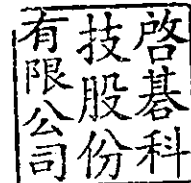 啓碁科
技股份
有限公司